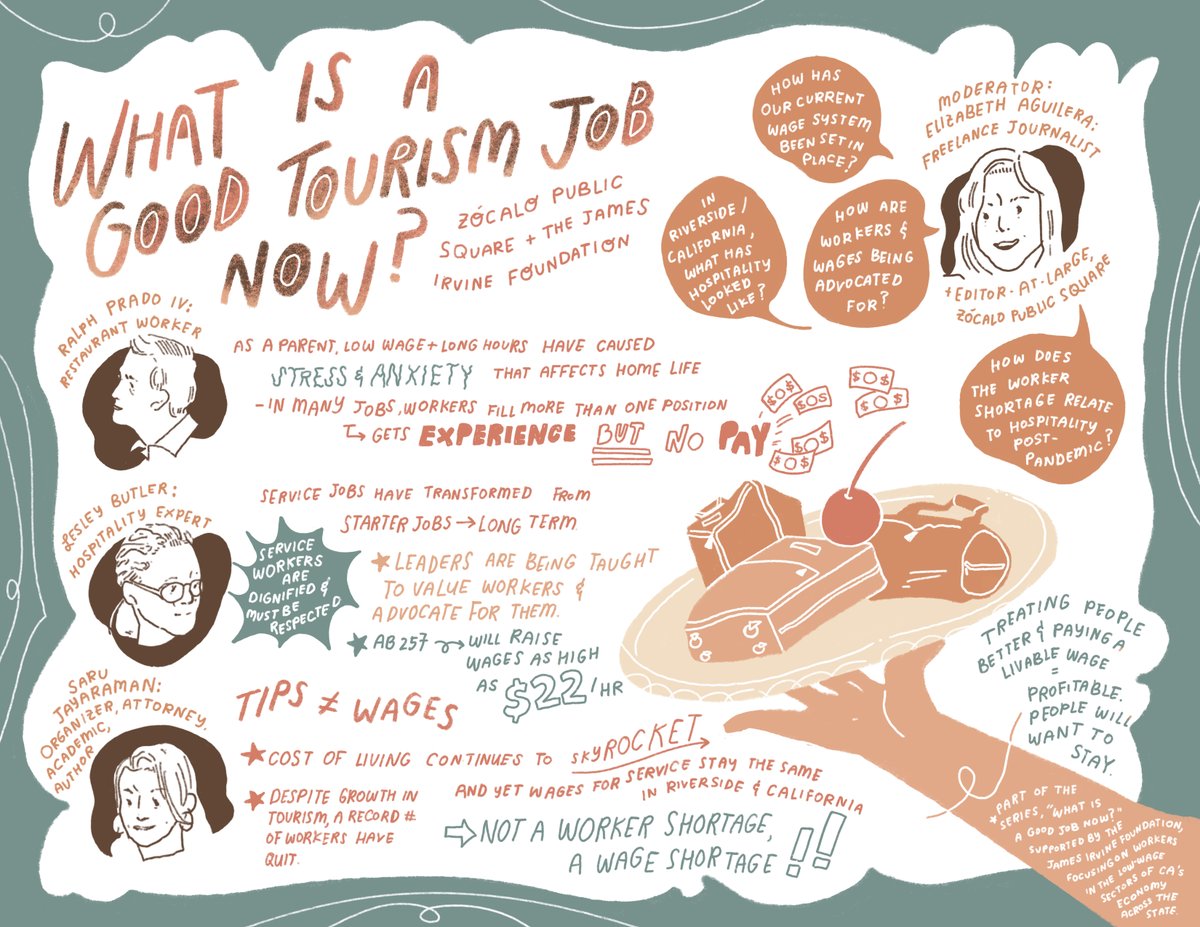 WHAT IS A
GOOD TOURISM JOB
NOW?
ZÓCALO PUBLIC
SQUARE + THE JAMES
IRVINE FOUNDATION
MODERATOR:
ELIZABETH AGUILERA:
FREELANCE JOURNALIST
+ EDITOR-AT-LARGE,
ZÓCALO PUBLIC SQUARE
HOW HAS
OUR CURRENT
WAGE SYSTEM
BEEN SET IN
PLACE?
IN
RIVERSIDE/
CALIFORNIA,
WHAT HAS
HOSPITALITY
LOOKED
LIKE?
HOW ARE
WORKERS &
WAGES BEING
ADVOCATED
FOR?
HOW DOES
THE WORKER
SHORTAGE RELATE
TO HOSPITALITY
POST-
PANDEMIC?
RALPH PRADO IV:
RESTAURANT WORKER
AS A PARENT, LOW WAGE + LONG HOURS HAVE CAUSED
STRESS & ANXIETY THAT AFFECTS HOME LIFE
- IN MANY JOBS, WORKERS FILL MORE THAN ONE POSITION
↳ GETS EXPERIENCE BUT NO PAY
$O$
$O$
$O$
$O$
$O$
$O$
LESLEY BUTLER:
HOSPITALITY EXPERT
SERVICE JOBS HAVE TRANSFORMED FROM
STARTER JOBS → LONG TERM
SERVICE
WORKERS
ARE
DIGNIFIED &
MUST BE
RESPECTED
★ LEADERS ARE BEING TAUGHT
TO VALUE WORKERS &
ADVOCATE FOR THEM.
★ AB 257 → WILL RAISE
WAGES AS HIGH
AS $22/HR
SARU
JAYARAMAN:
ORGANIZER, ATTORNEY,
ACADEMIC,
AUTHOR
TIPS ≠ WAGES
★ COST OF LIVING CONTINUES TO SKYROCKET
AND YET WAGES FOR SERVICE STAY THE SAME
IN RIVERSIDE & CALIFORNIA
★ DESPITE GROWTH IN
TOURISM, A RECORD #
OF WORKERS HAVE
QUIT.
⇨ NOT A WORKER SHORTAGE,
A WAGE SHORTAGE!!
TREATING PEOPLE
BETTER & PAYING A
LIVABLE WAGE
=
PROFITABLE.
PEOPLE WILL
WANT TO
STAY.
PART OF THE
★ SERIES, "WHAT IS
A GOOD JOB NOW?"
SUPPORTED BY THE
JAMES IRVINE FOUNDATION,
FOCUSING ON WORKERS
IN THE LOW-WAGE
SECTORS OF CA'S
ECONOMY
ACROSS THE
STATE.